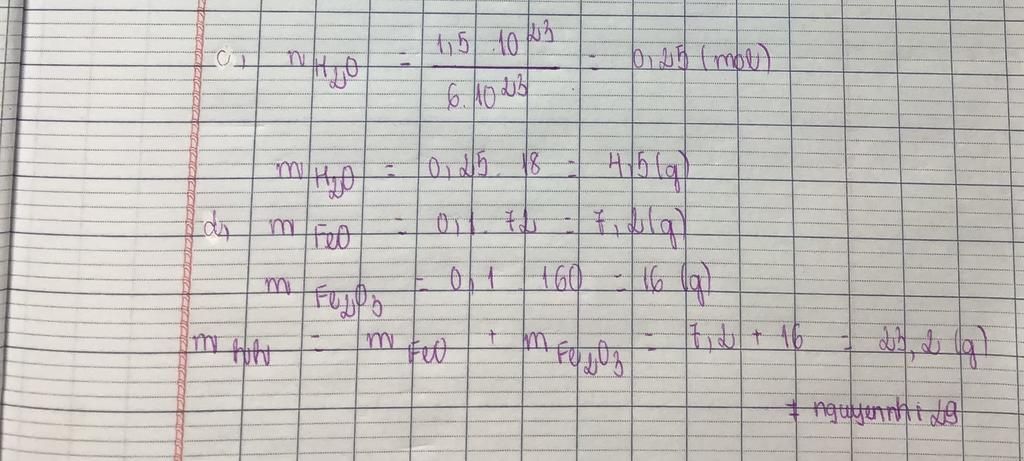 c, nH₂O = 1,5 . 10²³ / 6.10²³ = 0,25 (mol)
mH₂O = 0,25 . 18 = 4,5 (g)
d, mFeO = 0,1 . 72 = 7,2 (g)
mFe₂O₃ = 0,1 . 160 = 16 (g)
mhh = mFeO + mFe₂O₃ = 7,2 + 16 = 23,2 (g)
+ nguyennhi29